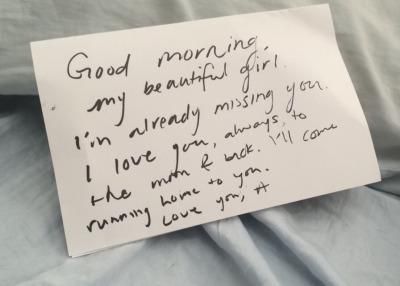 Good morning,
my beautiful girl.
I'm already missing you.
I love you, always, to
the moon & back. I'll come
running home to you.
Love you, A